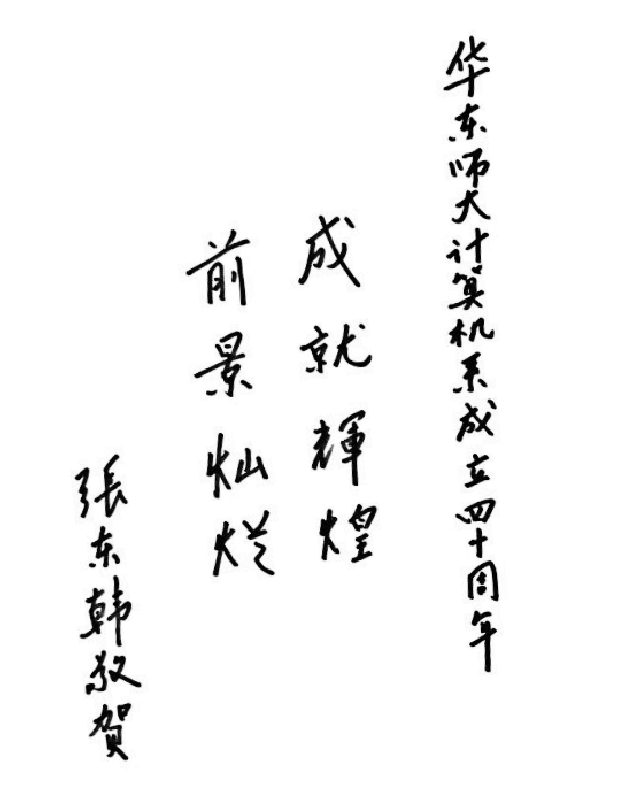 华东师大计算机系成立四十周年
成就輝煌
前景灿烂
張东韩敬贺